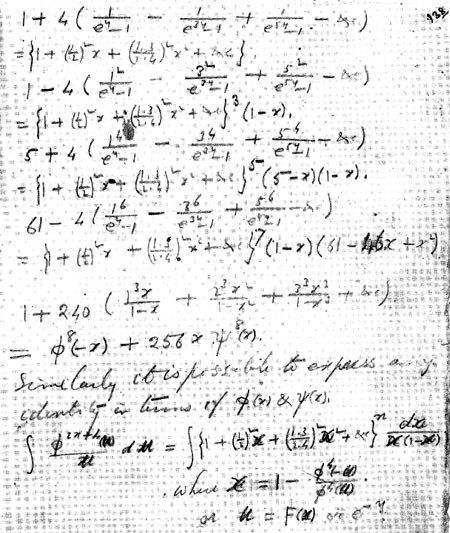 138
1 + 4 ( 1/(e^y-1) - 1/(e^{3y}-1) + 1/(e^{5y}-1) - &c )
= { 1 + (1/2)^2 x + (1·3/2·4)^2 x^2 + &c }
1 - 4 ( 1^2/(e^y-1) - 3^2/(e^{3y}-1) + 5^2/(e^{5y}-1) - &c )
= { 1 + (1/2)^2 x + (1·3/2·4)^2 x^2 + &c }^3 (1-x).
5 + 4 ( 1^4/(e^y-1) - 3^4/(e^{3y}-1) + 5^4/(e^{5y}-1) - &c )
= { 1 + (1/2)^2 x + (1·3/2·4)^2 x^2 + &c }^5 (5-x)(1-x).
61 - 4 ( 1^6/(e^y-1) - 3^6/(e^{3y}-1) + 5^6/(e^{5y}-1) - &c )
= { 1 + (1/2)^2 x + (1·3/2·4)^2 x^2 + &c }^7 (1-x)(61 - 46x + x^2)
1 + 240 ( 1^3 x/(1-x) + 2^3 x^2/(1-x^2) + 3^3 x^3/(1-x^3) + &c )
= φ^8(-x) + 256 x ψ^8(x).
Similarly it is possible to express any
identity in terms of φ(x) & ψ(x).
∫ φ^{2n+4}(u)/u du = ∫ { 1 + (1/2)^2 x + (1·3/2·4)^2 x^2 + &c }^n dx/(x(1-x))
where x = 1 - φ^4(-u)/φ^4(u).
or u = F(x) or e^{-y}.